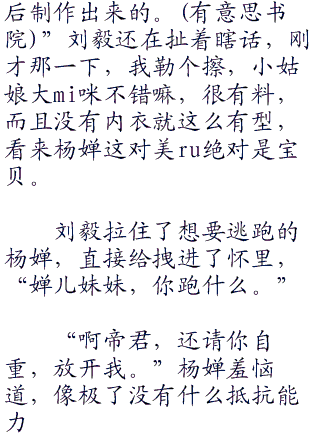 后制作出来的。(有意思书
院)”刘毅还在扯着瞎话，刚
才那一下，我勒个擦，小姑
娘大mi咪不错嘛，很有料，
而且没有内衣就这么有型，
看来杨婵这对美ru绝对是宝
贝。
刘毅拉住了想要逃跑的
杨婵，直接给拽进了怀里，
“婵儿妹妹，你跑什么。”
“啊帝君，还请你自
重，放开我。”杨婵羞恼
道，像极了没有什么抵抗能
力